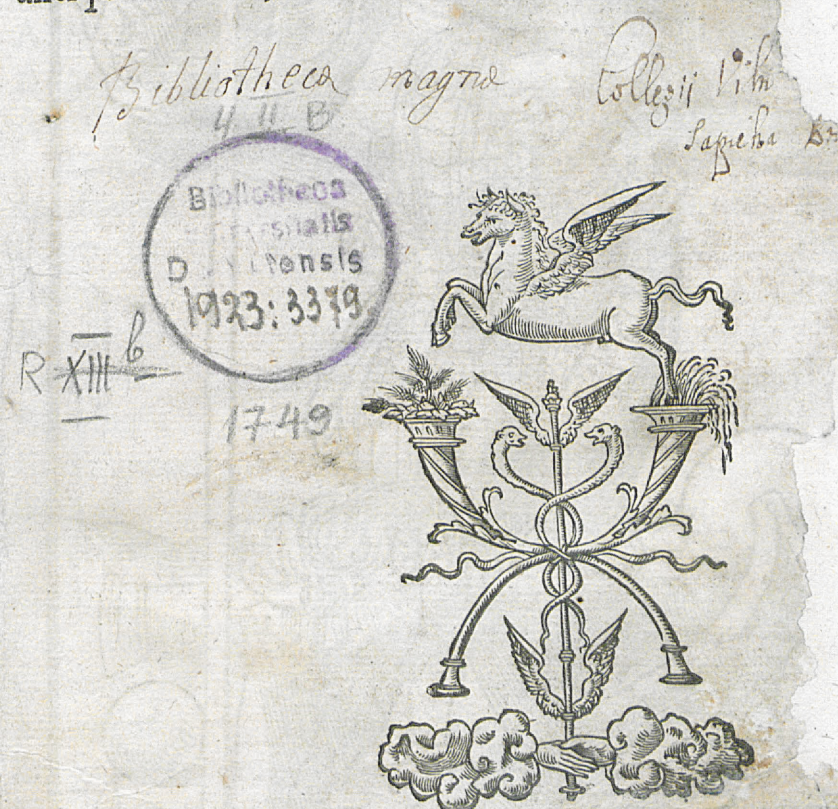 Bibliotheca magna Collegii Viln
Sapieha
4 II B
Bibliotheca
D
1923: 3379
R XIII b
1749